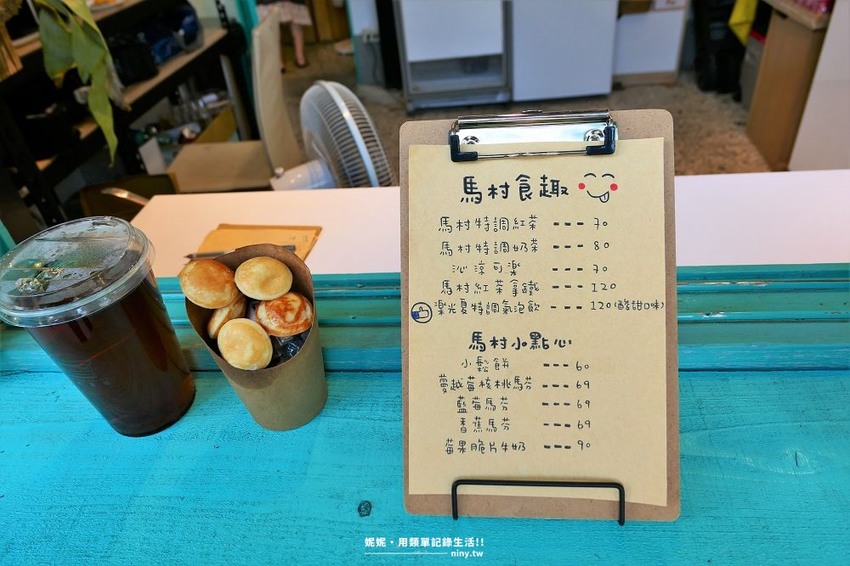 馬村食趣
馬村特調紅茶 --- 70
馬村特調奶茶 --- 80
沁涼可樂 --- 70
馬村紅茶拿鐵 --- 120
樂光夏特調氣泡飲 --- 120(酸甜口味)
馬村小點心
小鬆餅 --- 60
蔓越莓核桃馬芬 --- 69
藍莓馬芬 --- 69
香蕉馬芬 --- 69
莓果脆片牛奶 --- 90
妮妮•用類單記錄生活!!
niny.tw